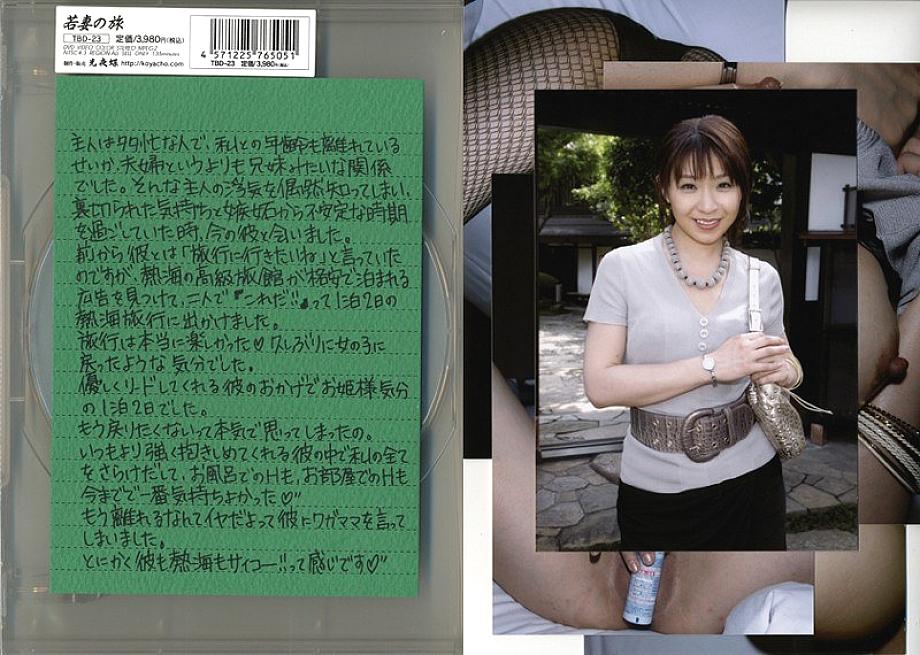 若妻の旅
TBD-23 定価/3,980円(税込)
DVD VIDEO COLOR STEREO MPEG-2
制作・販売 光夜蝶 http://koyacho.com
4 571225 765051
TBD-23 定価/3,980円(税込)
主人は多忙な人で、私との年齢も離れている
せいか、夫婦というよりも兄妹みたいな関係
でした。そんな主人の浮気を偶然知ってしまい、
裏切られた気持ちと嫉妬から不安定な時期
を過ごしていた時、今の彼と会いました。
前から彼とは「旅行に行きたいね」と言っていた
のですが、熱海の高級旅館が格安で泊まれる
広告を見つけて、二人で“これだ!!”って1泊2日の
熱海旅行に出かけました。
旅行は本当に楽しかった♡久しぶりに女の子に
戻ったような気分でした。
優しくリードしてくれる彼のおかげでお姫様気分
の1泊2日でした。
もう戻りたくないって本気で思ってしまったの。
いつもより強く抱きしめてくれる彼の中で私の全て
をさらけだして、お風呂でのHも、お部屋でのHも
今までで一番気持ちよかった♡”
もう離れるなんてイヤだよって彼にワガママを言って
しまいました。
とにかく彼も熱海もサイコー!!って感じです♡”